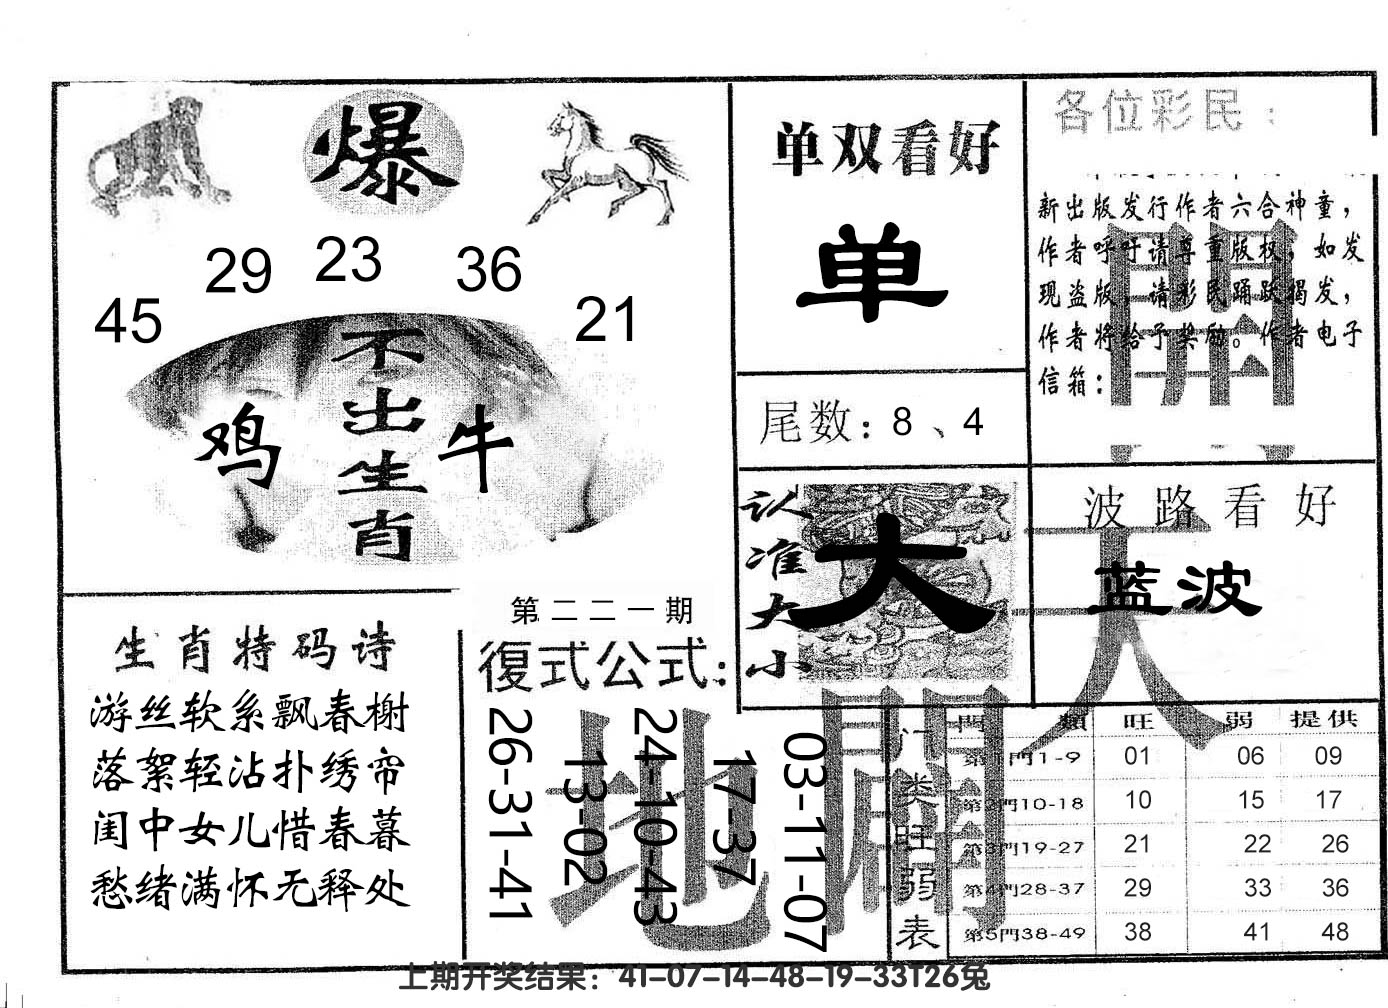 爆
29 23 36
45 21
不出生肖
鸡 牛
单双看好
单
尾数：8、4
各位彩民：
新出版发行作者六合神童，
作者呼吁请尊重版权，如发
现盗版，请彩民踊跃揭发，
作者将给予奖励。作者电子
信箱：
認准大小
大
波路看好
蓝波
天
地
第二二一期
復式公式：
26-31-41
13-02
24-10-43
17-37
03-11-07
生肖特码诗
游丝软系飘春榭
落絮轻沾扑绣帘
闺中女儿惜春暮
愁绪满怀无释处
门类旺弱表
門類 旺 弱 提供
第1門1-9 01 06 09
第2門10-18 10 15 17
第3門19-27 21 22 26
第4門28-37 29 33 36
第5門38-49 38 41 48
上期开奖结果：41-07-14-48-19-33T26兔